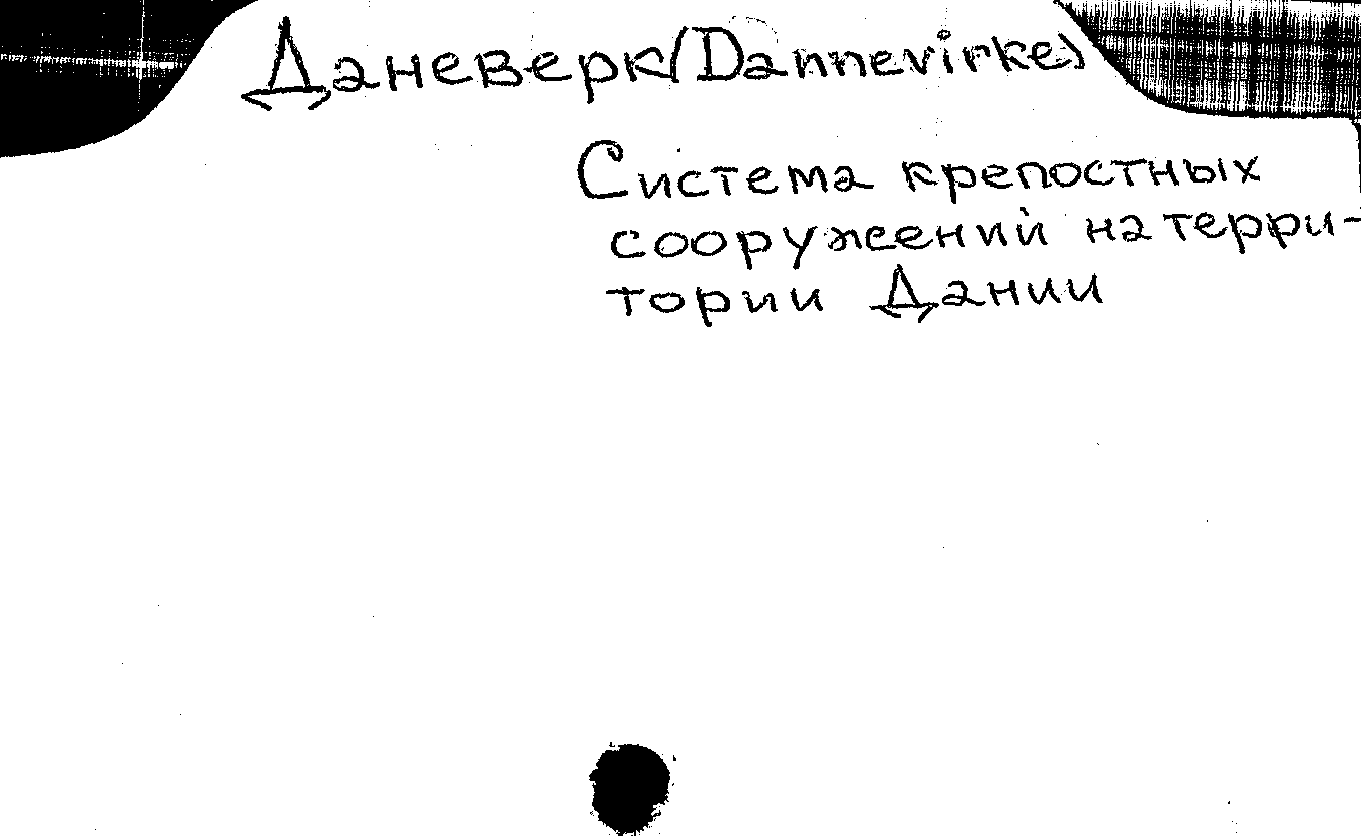 Даневерк (Dannevirke)
Система крепостных
сооружений на терри-
тории Дании